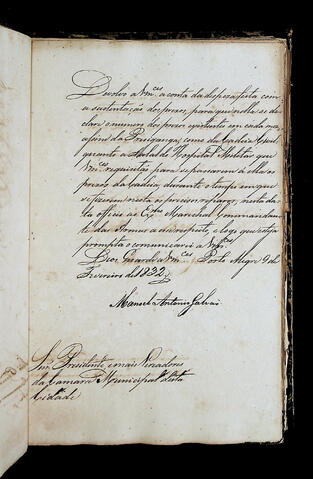 Devolvo a Vm.ces a conta da despeza feita com
a sustentação dos prezos, para que nella se de-
clare o numero dos prezos existentes em cada mez
assim da Presiganga, como da Cadeia Civil,
quanto a Sala do Hospital Militar que
Vm.ces requisitão para se passarem á ella os
prezos da Cadeia durante o tempo em que
se fizerem nesta os precisos reparos, nesta da-
ta officio ao Ex.mo Marechal Commandante
das Armas a este respeito, e logo que esteja
prompta o communicarei a Vm.ces
Deos Guarde a Vm.ces Porto Alegre 9 de
Fevereiro de 1832
Manoel Antonio Galvão
Snr. Presidente e mais Vereadores
da Camara Municipal desta
Cidade